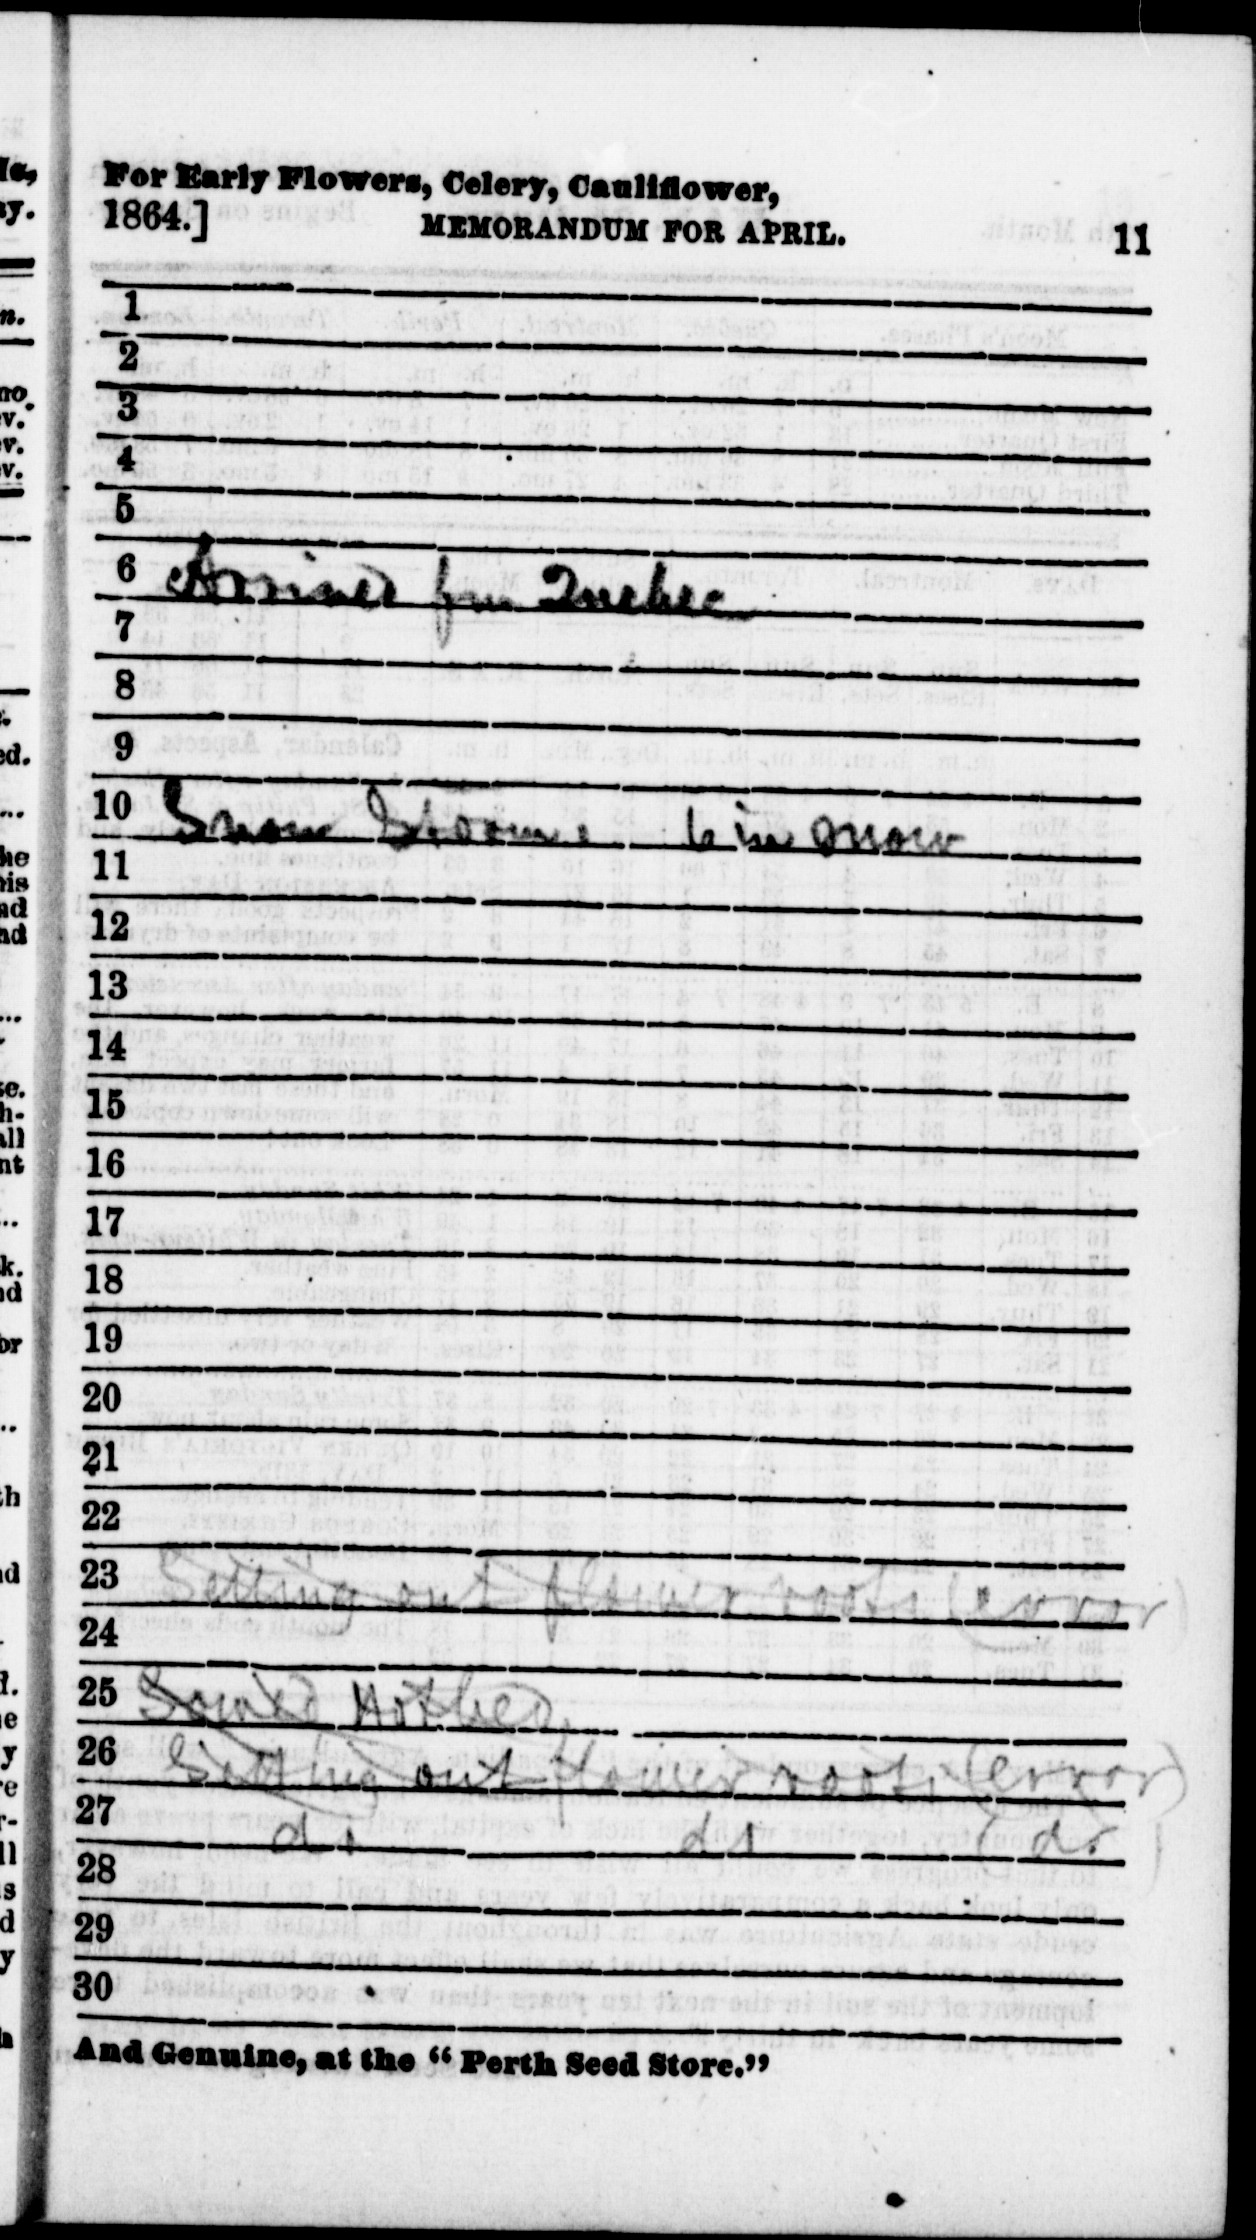 For Early Flowers, Celery, Cauliflower,
1864.] MEMORANDUM FOR APRIL. 11
1
2
3
4
5
6 Arrived from Quebec
7
8
9
10 Snow Storm 6 in snow
11
12
13
14
15
16
17
18
19
20
21
22
23 Setting out flower roots (error)
24
25 Sowed Hotbed
26 Setting out flower roots (error)
27 do do (do)
28
29
30
And Genuine, at the "Perth Seed Store."